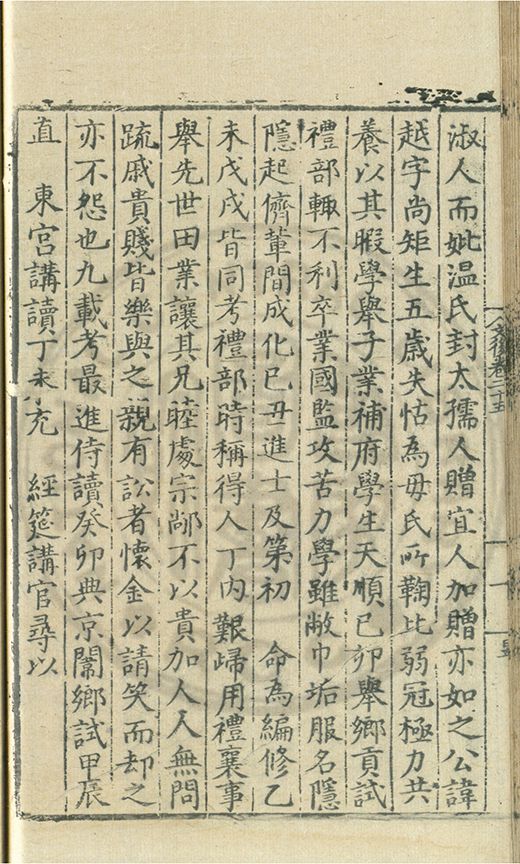 淑人而妣温氏封太孺人贈宜人加贈亦如之公諱
越字尚矩生五歳失怙為毋氏所鞠比弱冠極力共
養以其暇學舉子業補府學生天順巳卯舉鄉貢試
禮部輙不利卒業國監攻苦力學雖敝巾垢服名隱
隱起儕輩間成化巳丑進士及第初　命為編修乙
未戊戌皆同考禮部時稱得人丁内艱歸用禮襄事
舉先世田業讓其兄睦處宗不以貴加人人無問
踈戚貴賤皆樂與之親有訟者懷金以請笑而却之
亦不怨也九載考最進侍讀癸卯典京闈鄉試甲辰
直　東宮講讀丁未充　經筵講官尋以
卷二十五